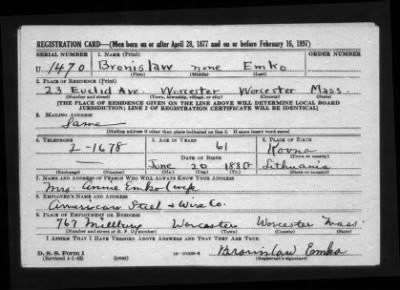 REGISTRATION CARD—(Men born on or after April 28, 1877 and on or before February 16, 1897)
SERIAL NUMBER 1. NAME (Print) ORDER NUMBER
U 1470 Bronislaw none Emko
(First) (Middle) (Last)
2. PLACE OF RESIDENCE (Print)
23 Euclid Ave. Worcester Worcester Mass.
(Number and street) (Town, township, village, or city) (County) (State)
[THE PLACE OF RESIDENCE GIVEN ON THE LINE ABOVE WILL DETERMINE LOCAL BOARD
JURISDICTION; LINE 2 OF REGISTRATION CERTIFICATE WILL BE IDENTICAL]
3. MAILING ADDRESS
Same
[Mailing address if other than place indicated on line 2. If same insert word same]
4. TELEPHONE 5. AGE IN YEARS 6. PLACE OF BIRTH
2-1678 61 Kovno
DATE OF BIRTH (Town or county)
June 20 1880 Lithuania
(Exchange) (Number) (Mo.) (Day) (Yr.) (State or country)
7. NAME AND ADDRESS OF PERSON WHO WILL ALWAYS KNOW YOUR ADDRESS
Mrs. Annie Emko
8. EMPLOYER'S NAME AND ADDRESS
American Steel & Wire Co.
9. PLACE OF EMPLOYMENT OR BUSINESS
767 Millbury Worcester Worcester Mass.
(Number and street or R. F. D. number) (Town) (County) (State)
I AFFIRM THAT I HAVE VERIFIED ABOVE ANSWERS AND THAT THEY ARE TRUE.
D. S. S. Form 1
(over) Bronislaw Emko
(Registrant's signature)